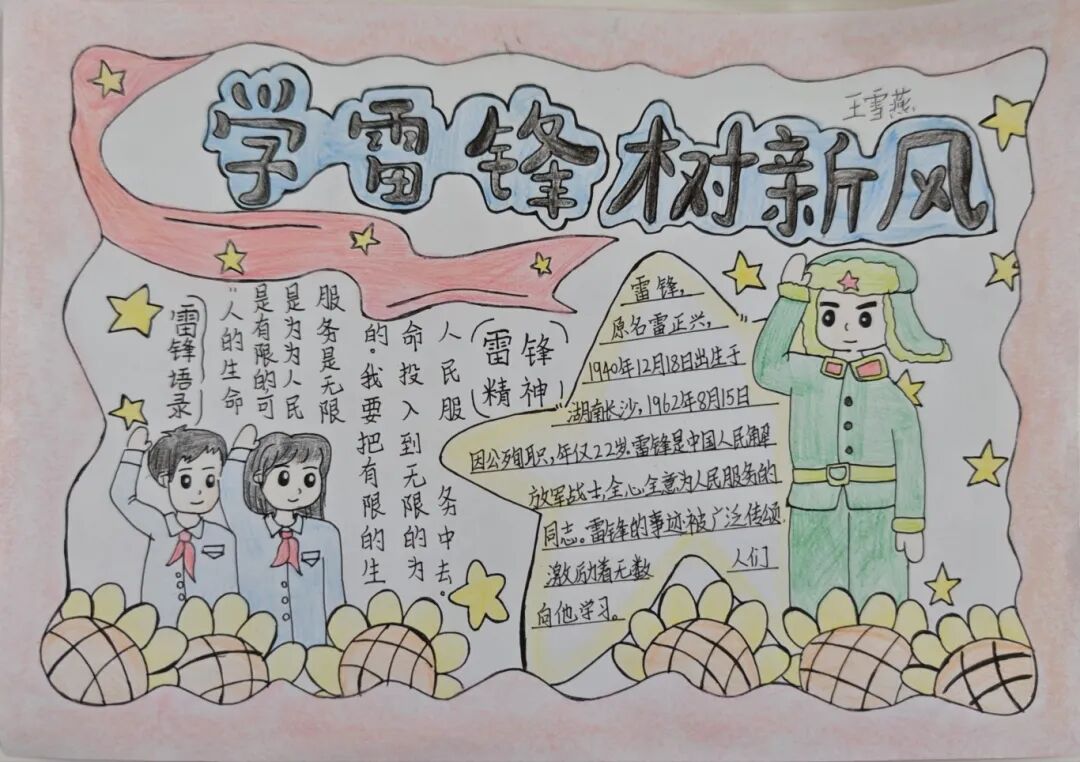 学雷锋 树新风
王雪燕
雷锋语录
“人的生命
是有限的可
是为为人民
服务是无限
的.我要把有限的生
命投入到无限的为
人民服务中去.”
雷锋
精神
雷锋,
原名雷正兴,
1940年12月18日出生于
湖南长沙,1962年8月15日
因公殉职,年仅22岁.雷锋是中国人民解
放军战士,全心全意为人民服务的
同志。雷锋的事迹被广泛传颂.
激励着无数 人们
向他学习。